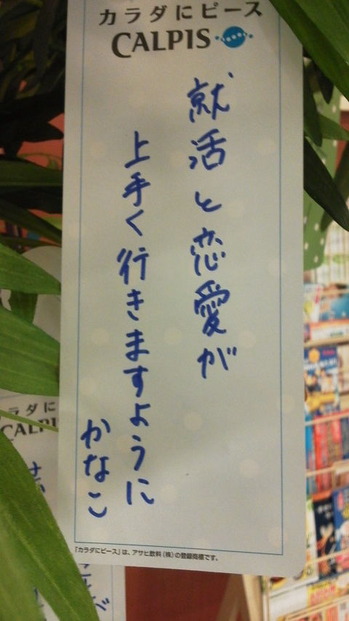 カラダにピース
CALPIS
就活と恋愛が
上手く行きますように
かなこ
「カラダにピース」は、アサヒ飲料(株)の登録商標です。
ラダに
CALPI